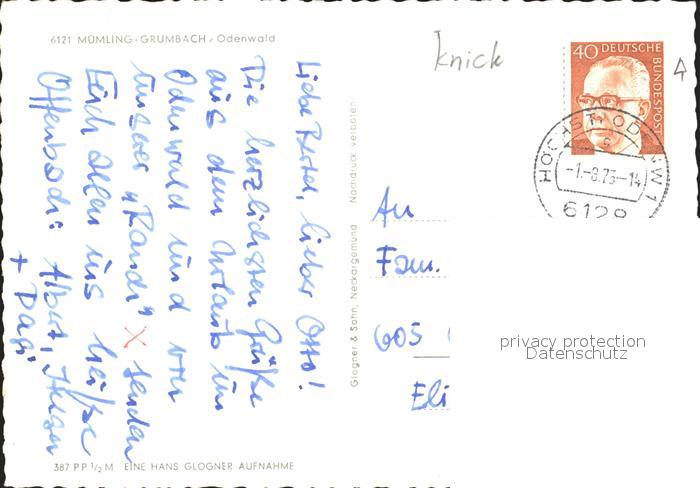 6121 MÜMLING-GRUMBACH, Odenwald
knick
40 DEUTSCHE
BUNDESPOST
HÖCHST, ODENW 1
-1.-8.73-14
6128
Liebe Bertel, lieber Otto!
Die herzlichsten Grüße
aus dem Urlaub im
Odenwald und von
unserer "Randi" X senden
Euch allen uns
Offenbach: Albert,
+ Dagi
Nachdruck verboten
Glogner & Sohn, Neckargemünd
An
Fam.
605
Eli
privacy protection
Datenschutz
387 PP ½ M EINE HANS GLOGNER AUFNAHME